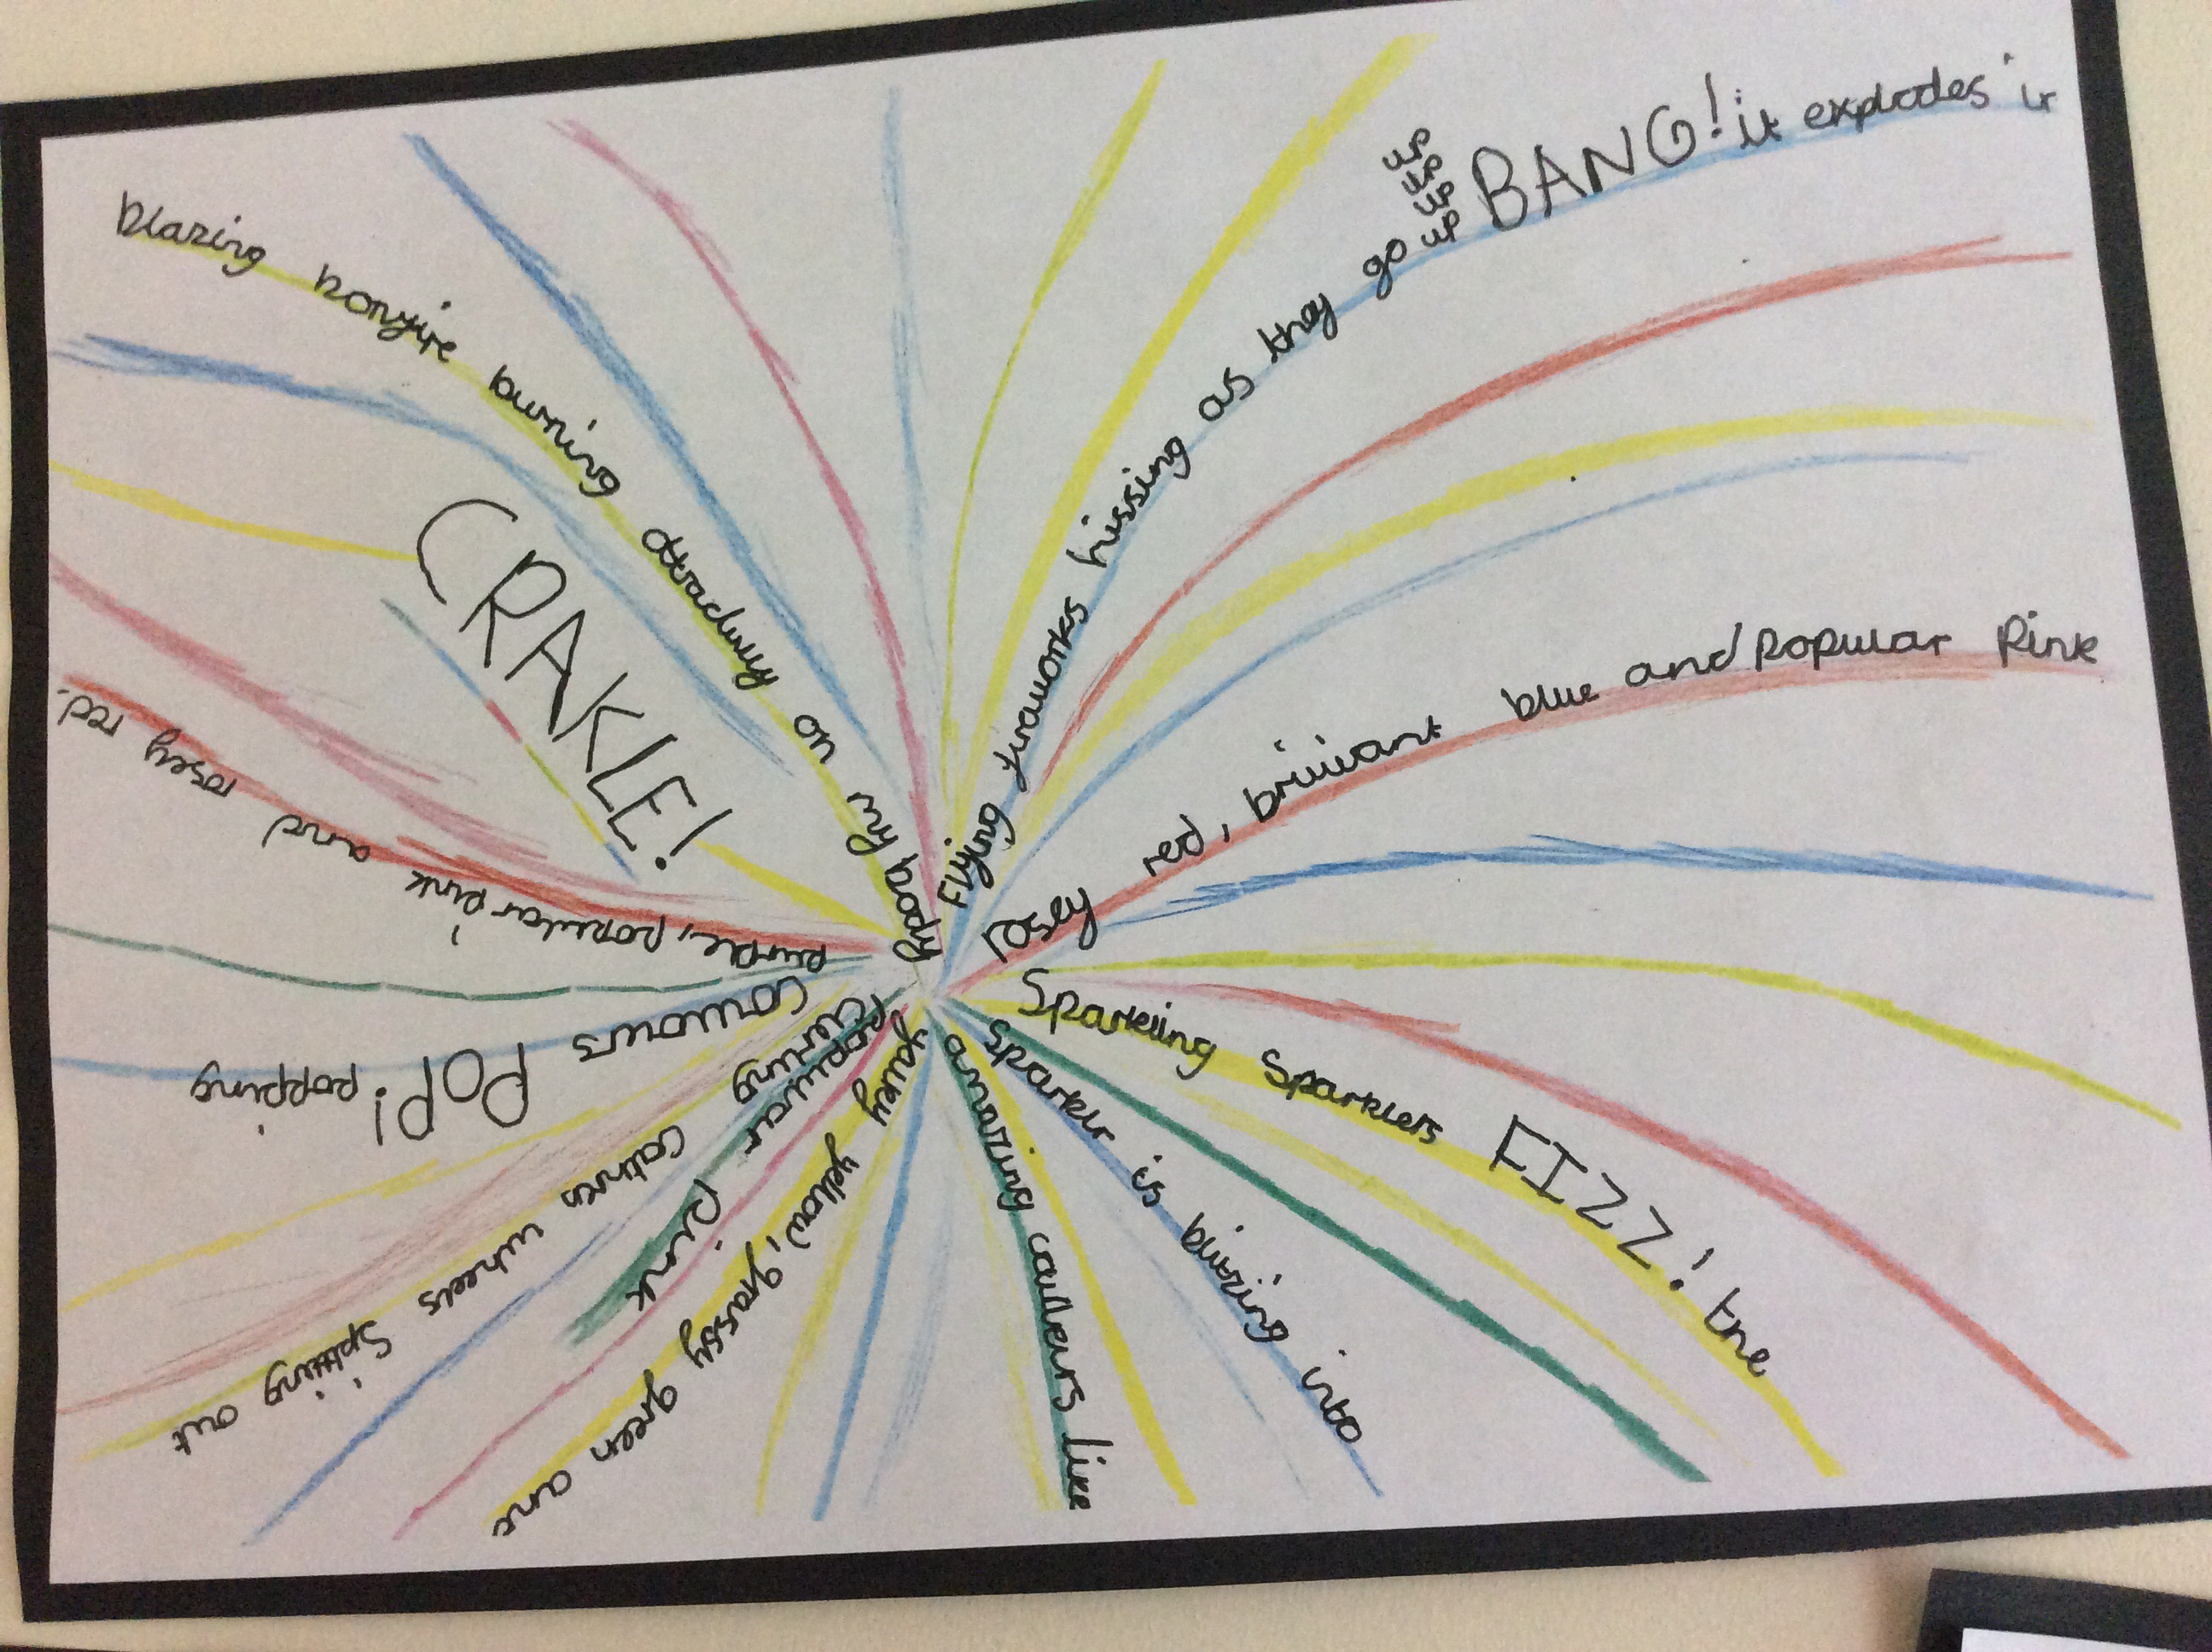 Blazing bonfire burning on my
CRAKLE!
Flying fireworks hissing as they go up up up up up BANG! it explodes in
Rosey red, brilliant blue and Popular Pink
Sparkling Sparklers FIZZ! the
Sparkler is blazing into
amazing coulers like
yellow, grassy green and
popular Pink
cathren wheels Spitting out
POP! popping
purple, popular pink and rosey red.